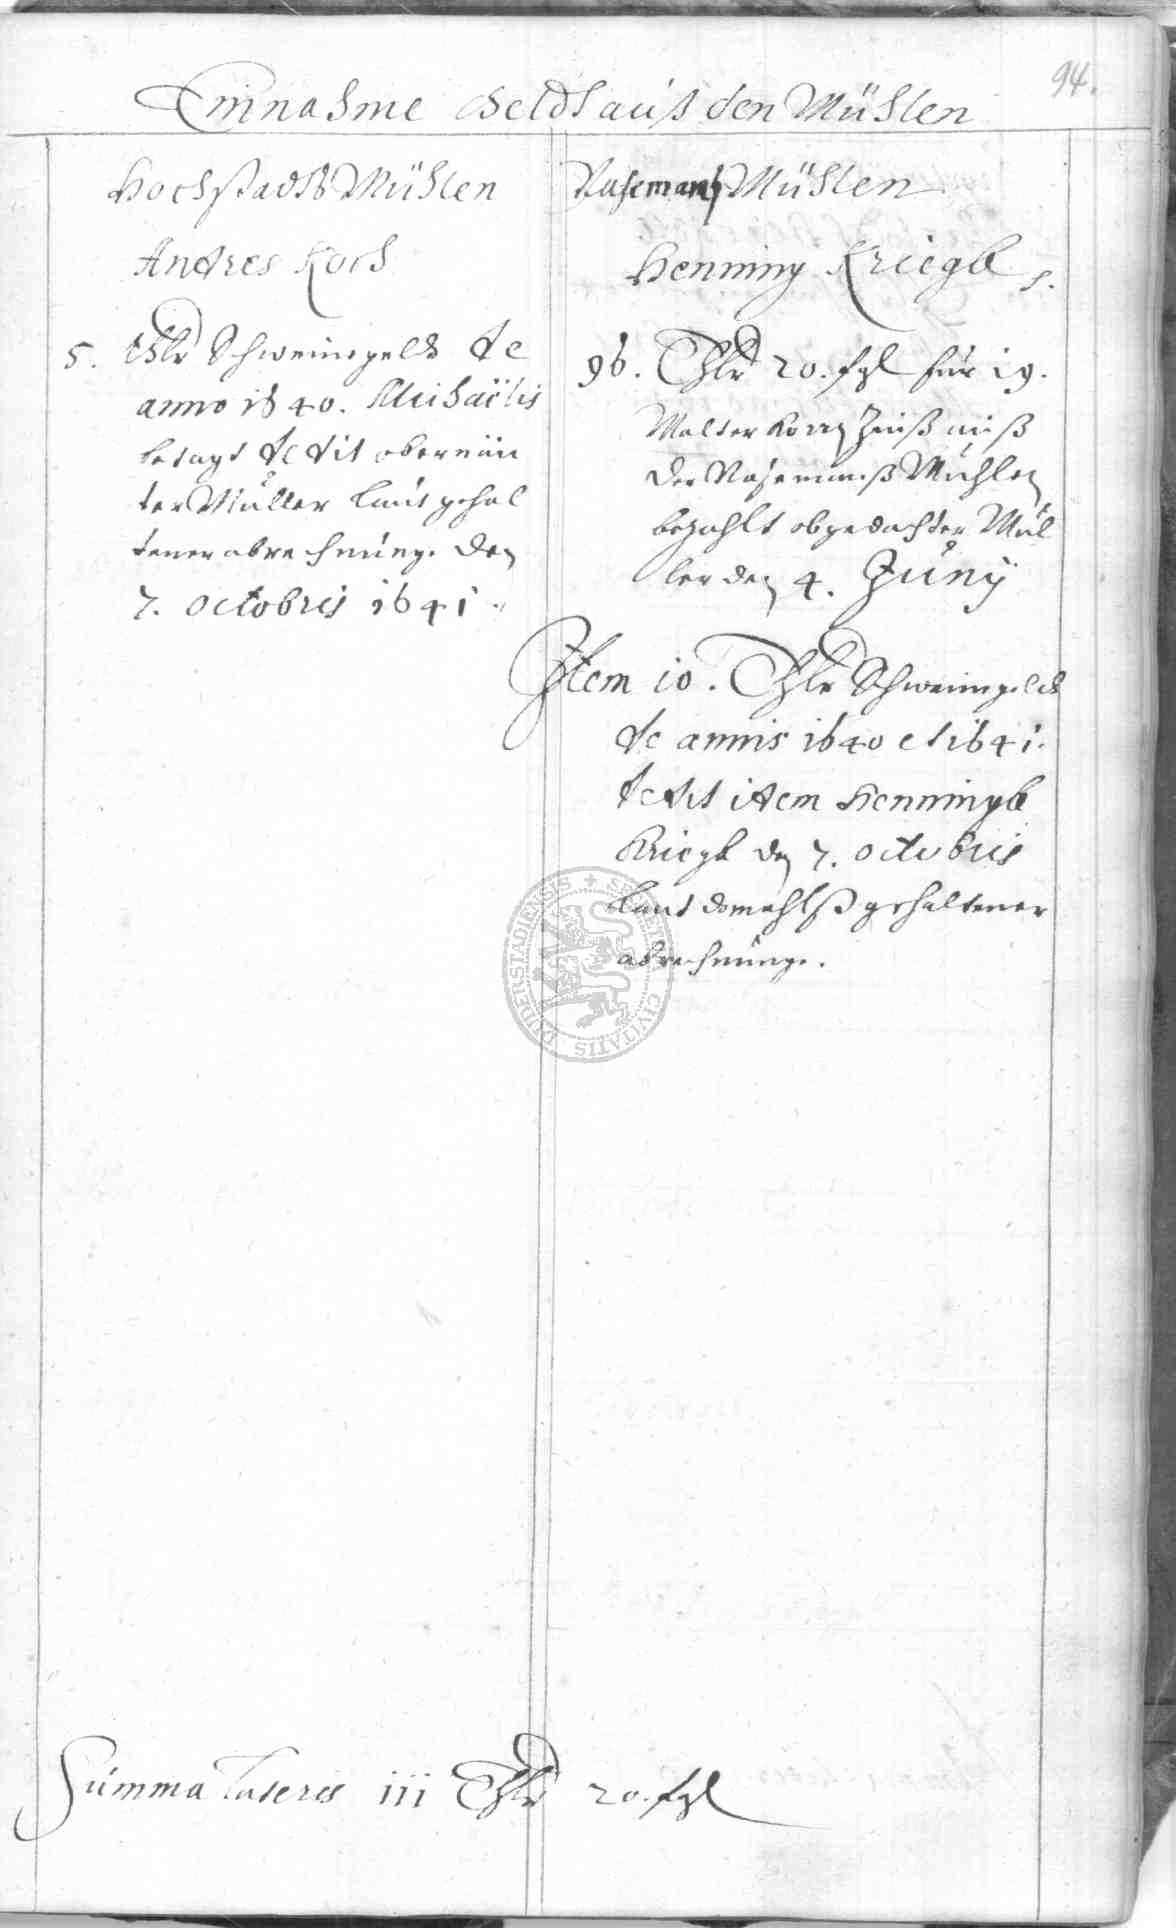 94.
Einnahme Geldt auß den Mühlen
Hochstadts Mühlen
Andres Koch
5. Thlr Schweinegeldt de
anno 1640. Michaëlis
betagt dedit obernan
ter Müller laut gehal
tener abrechnunge den
7. octobris 1641.
Mühlen
Henning Kriegk
96. Thlr 20. ßgl für 19.
Malter Korn Zinß auß
der Mühlen
bezahlt obgedachter Mül
ler den 4. Juny
Item 10. Thlr Schweingeldt
de annis 1640 et 1641.
dedit idem Henningk
Kriegk den 7. octobris
laut domahlß gehaltener
abrechnunge.
SECRETA CIVITATIS DUDERSTADIENSIS
Summa lateris 111 Thlr 20. ßgl